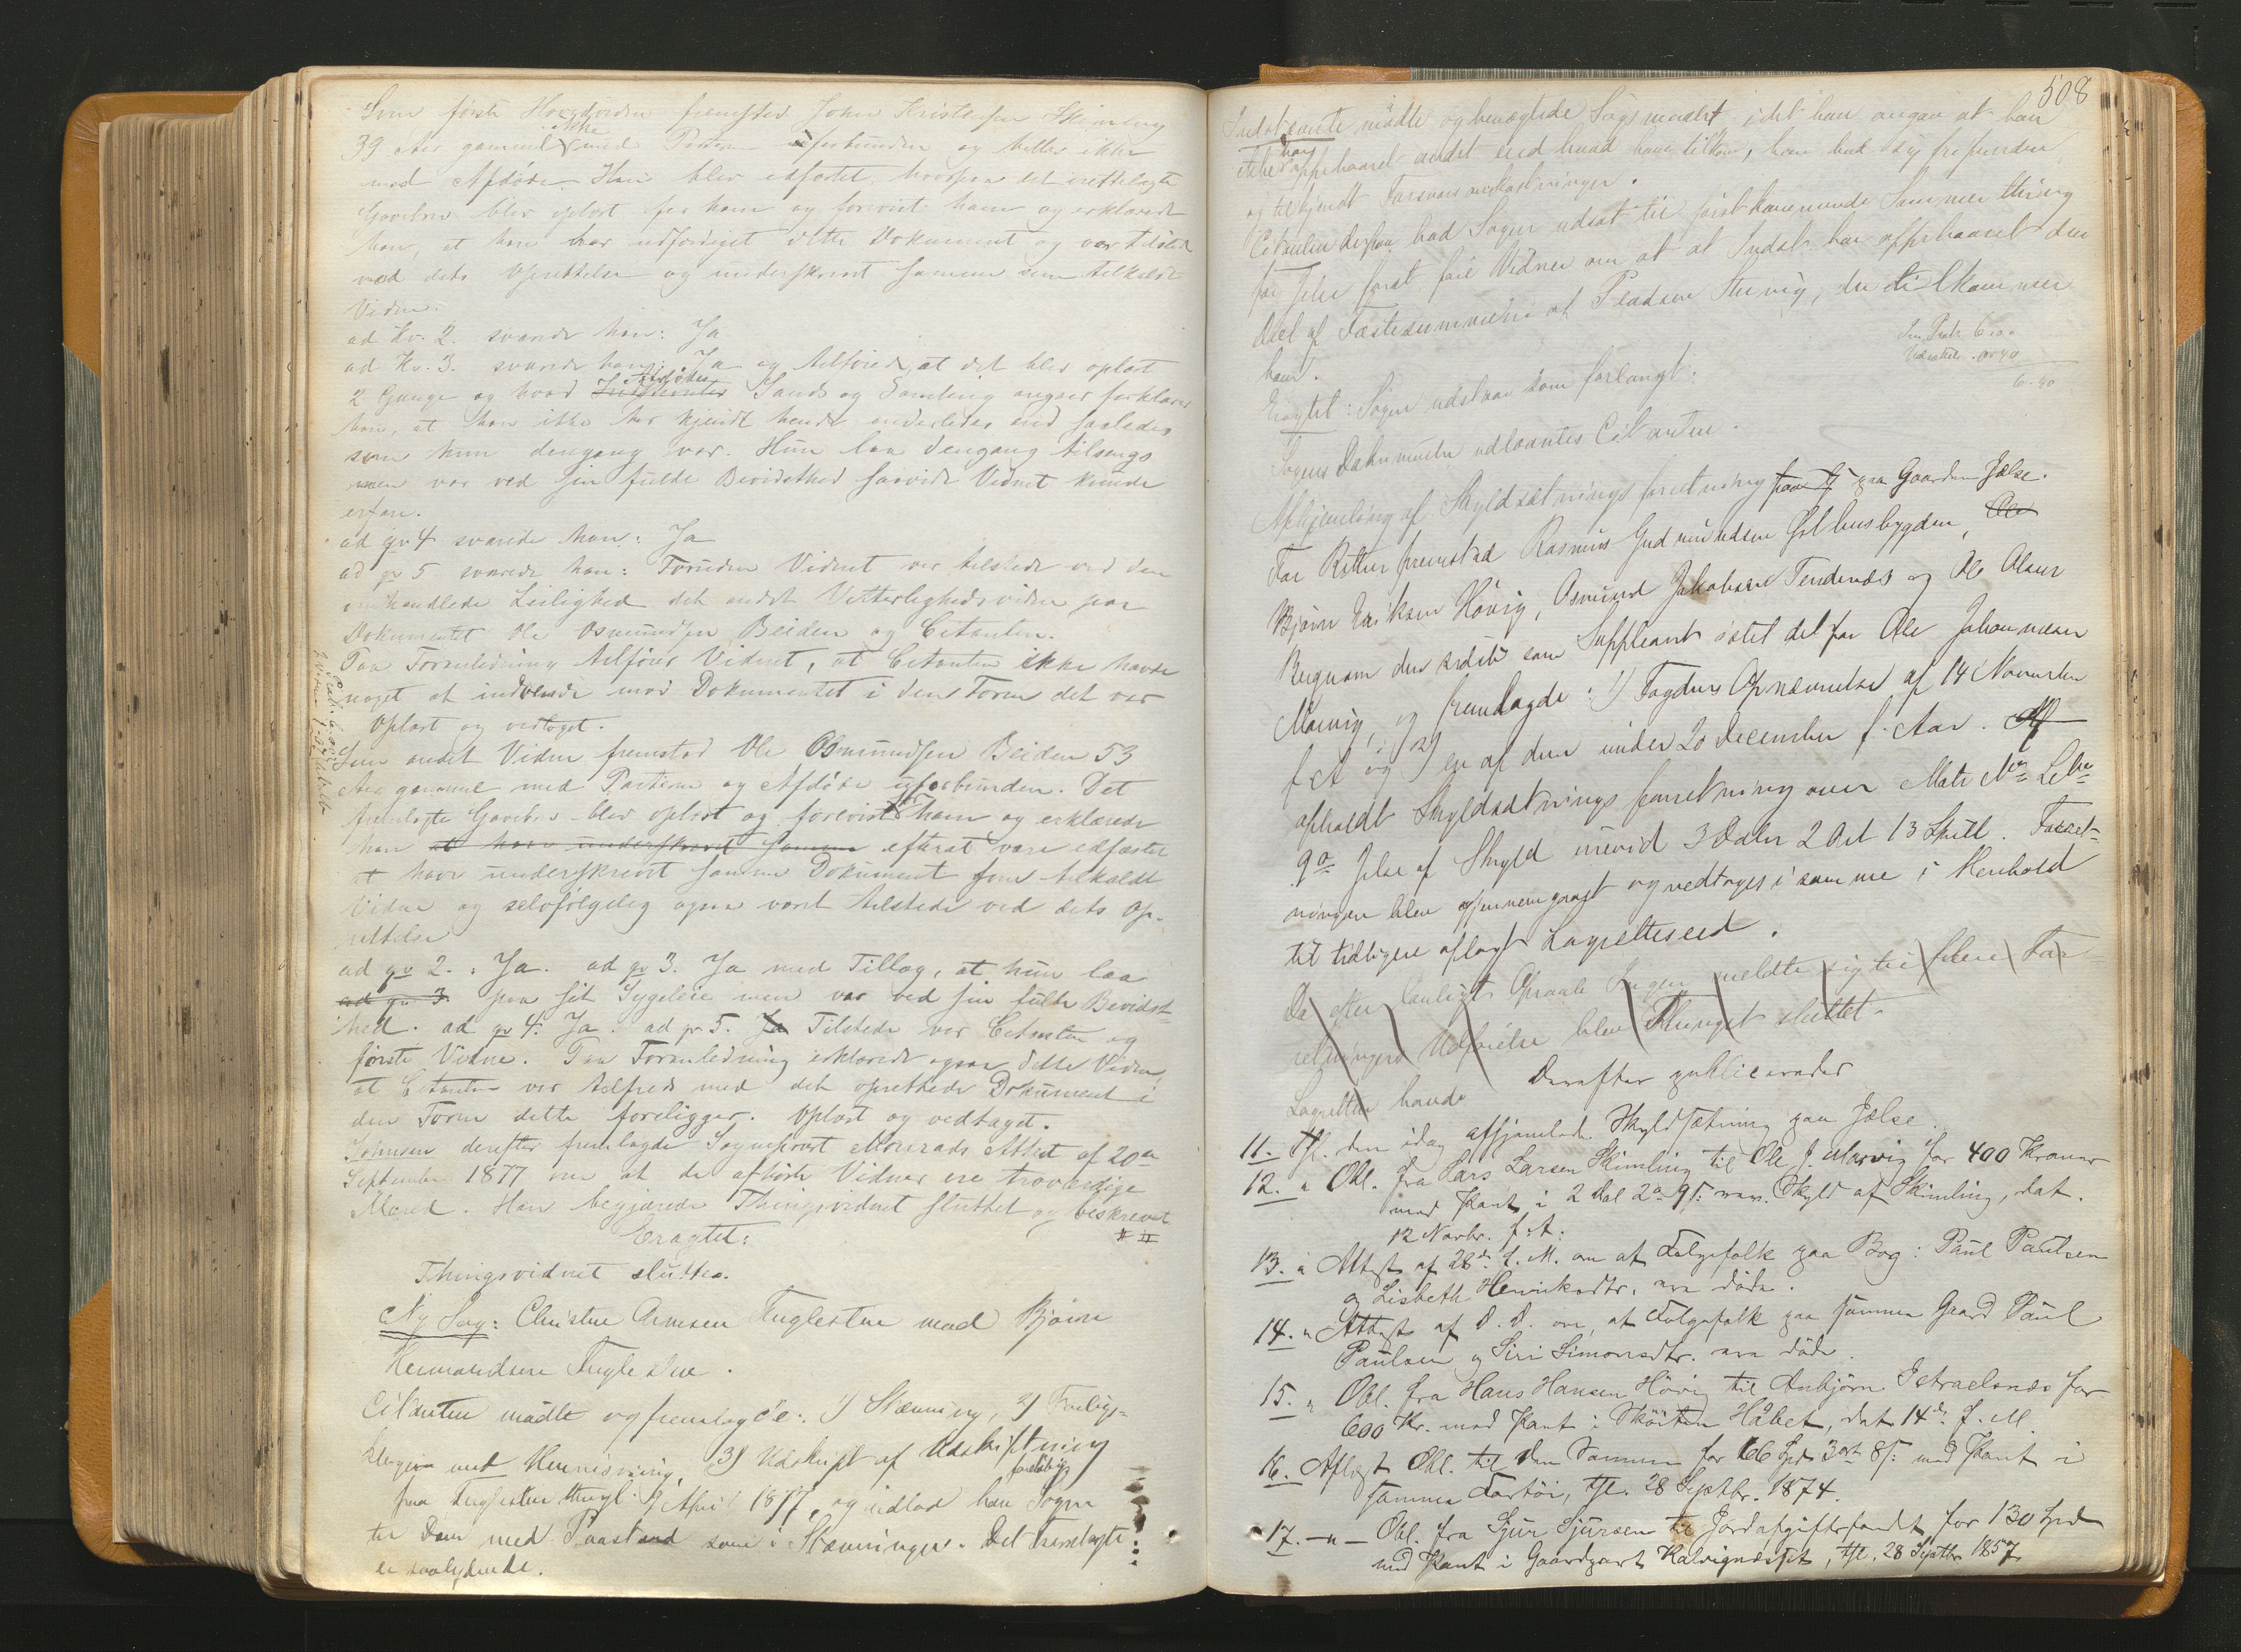 Som første Hovedvidne fremstod John Kristensen Skimling
39 Aar gammel ikke med Parterne uforbunden og heller ikke
med Afdøde. Han blev edfæstet, hvorpaa det irettelagte
Gavebrev blev oplæst for ham og forevist ham og erklærede
han, at han har udfærdiget dette Dokument og var tilstede
ved dets Oprettelse og underskrevet samme som tilkaldt
Vidne.
ad Kv. 2. svarede han: Ja
ad Kv. 3. svarede han: Ja og tilføiede at det blev oplæst
2 Gange og hvad Afdødes Sands og Samling angaar forklarer
han, at han ikke har kjendt hende anderledes end saaledes
som hun dengang var. Hun laa dengang tilsengs
men var ved sin fulde Bevidsthed saavidt Vidnet kunde
erfare.
ad qv 4 svarede han: Ja
ad qv 5 svarede han: Foruden Vidnet var tilstede ved den
omhandlede Leilighed det andet Vitterlighedsvidne paa
Dokumentet Ole Osmundsen Beiden og Citanten.
Paa Foranledning tilføier Vidnet, at Citanten ikke havde
noget at indvende mod Dokumentet i den Form det var
Oplæst og vedtaget.
Som andet Vidne fremstod Ole Osmundsen Beiden 53
Aar gammel med Parterne og Afdøde uforbunden. Det
fremlagte Gavebrev blev oplæst og forevist ham og erklærede
han at have underskrevet samme efterat være edfæstet
at have underskrevet samme Dokument som tilkaldt
Vidne og selvfølgelig ogsaa været tilstede ved dets Op-
rettelse
ad qv 2. : Ja. ad qv 3. Ja med Tillæg, at hun laa
ad qv. 3. paa sit Sygeleie men var ved sin fulde Bevidst-
hed. ad qv 4. Ja. ad qv. 5. Ja Tilstede var Citanten og
første Vidne. Paa Foranledning erklærede ogsaa dette Vidne,
at Citanten var tilfreds med det oprettede Dokument i
den Form dette foreligger. Oplæst og vedtaget.
Johnsen derefter fremlagde Sogneprest Monrads Attest af 20de
September 1877 om at de afhørte Vidner ere troværdige
Mænd. Han begjærede Thingsvidnet sluttet og beskrevet
Eragtet:
Thingsvidnet sluttes.
Ny Sag: Christen Arnesen Fuglestue mod Bjørn
Hermandsen Fuglestue.
Citanten mødte og fremlagde: 1) Stævning, 2) Forligs-
klagen med Henvisning, 3) Udskrift af Udskiftning
foreløbig
paa Fuglestue thingl. 9 April 1877, og indlod han Sagen
til Dom med Paastand som i Stævningen. Det fremlagte
er saalydende.
508
Indstævnte mødte og benægtede Søgsmaalet idet han angav at han
ikke har oppebaaret andet end hvad ham tilkom, han bad sig frifunden
og tilkjendt Farsvarsomkostninger.
Citanten derpaa bad Sagen udsat til førstkommende Sommerthing
for Jelse forat føre Vidner om at Indst. har oppebaaret den
Deel af Fæstesummen af Pladsen Huvig, der tilkommer
ham.
6.40
Eragtet: Sagen udstaar som forlangt.
Sagens Dokumenter udlaantes Citanten.
Afhjemling af Skyldsætningsforretning paa Gaarden Jelse.
For Retten fremstod Rasmus Gudmundsen Østhusbygden, Ole
Bjørn Eriksen Høvig, Osmund Jakobsen Tendenes og Ole Olsen
Bergum den sidste som Suppleant istedetfor Ole Johannesen
Marvig, og fremlagde: 1) Fogdens Opnævnelse af 14 November
f A og 2) en af dem under 20 December f. Aar. Af
afholdt Skyldsætningsforretning over Matr No Lbn
9a Jelse af Skyld urevid 3 Daler 2 Ort 13 Skill. Forret-
ningen blev gjennemgaaet og vedtoges i samme i Henhold
til tidligere aflagt Lagretteseed.
Da efter lovligt Opraab Ingen meldte sig til flere For-
retningers Udførelse blev Thinget sluttet.
Lagretten havde Derefter publiceredes
11. Thl. den idag afhjemlede Skyldsætning paa Jelse.
12. " Obl. fra Lars Larsen Skimling til Ole J. Marvig for 400 Kroner
med Pant i 2 Dal 2o 9s: rev. Skyld af Skimling, dat.
12 Novbr. f. A.
13. " Attest af 28de f. M. om at Folgefolk paa Bog: Paul Paulsen
og Lisbeth Henriksdtr. ere døde.
14. " Attest af D. D. om, at Folgefolk paa samme Gaard Paul
Paulsen og Siri Simonsdtr. ere døde.
15. " Obl. fra Hans Hansen Høvig til Anbjørn Istraelsnes for
600 Kr. med Pant i Skøiten Håbet, dat 14de f. M.
16. Aflæst Obl. til den Samme for 166 Spd 3ort 8s: med Pant i
samme Fartøi, thl. 28 Septbr. 1874.
17. -"- Obl. fra Sjur Sjursen til Jordafgiftsfondet for 130 Spd
med Pant i Gaardpart Kalvignæsset, thl. 28 Septbr 1857